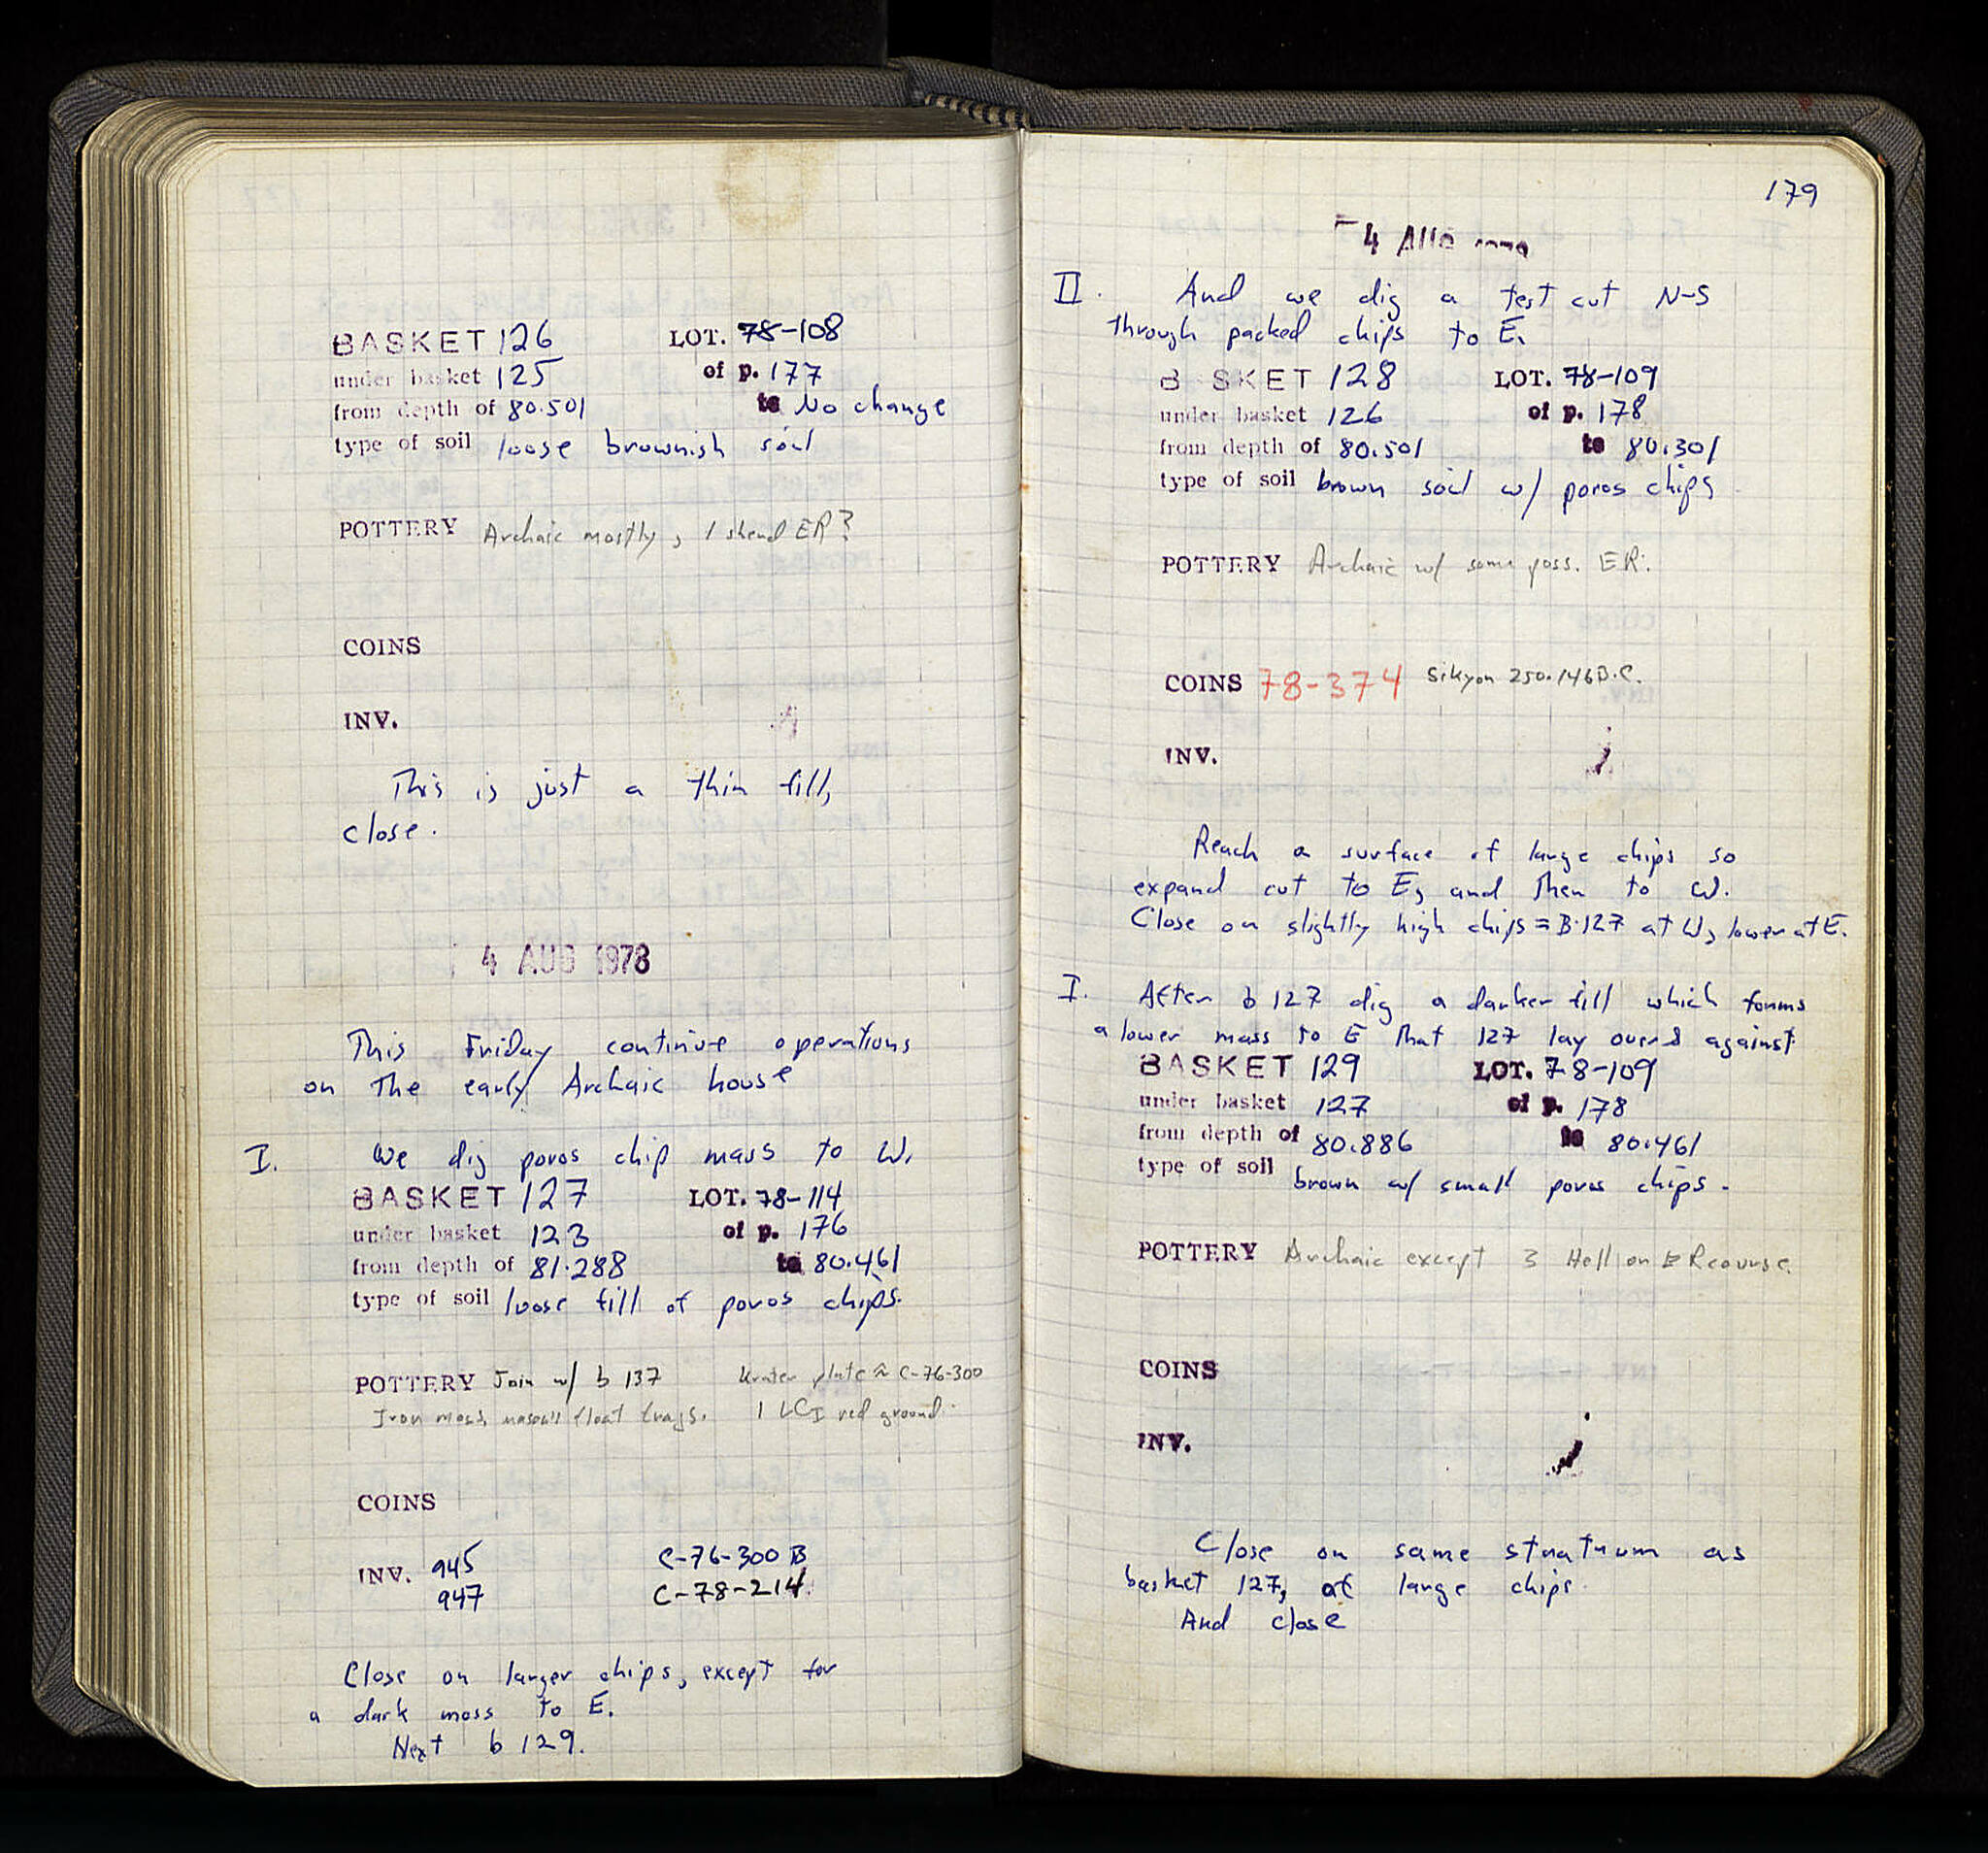 BASKET 126 LOT. 78-108
under basket 125 of p. 177
from depth of 80.501 to No change
type of soil loose brownish soil
POTTERY Archaic mostly, 1 sherd ER?
COINS
INV.
This is just a thin fill,
close.
4 AUG 1978
This Friday continue operations
on the early Archaic house
I. We dig poros chip mass to W.
BASKET 127 LOT. 78-114
under basket 123 of p. 176
from depth of 81.288 to 80.461
type of soil loose fill of poros chips.
POTTERY Join w/ b 137 Krater plate ≈ C-76-300
Iron float frags. 1 LCI red ground.
COINS
INV. 945 C-76-300 B
947 C-78-214.
Close on larger chips, except for
a dark mass to E.
Next b 129.
179
4 AUG
II. And we dig a test cut N-S
through packed chips to E.
B SKET 128 LOT. 78-109
under basket 126 of p. 178
from depth of 80.501 to 80.301
type of soil brown soil w/ poros chips.
POTTERY Archaic w/ some poss. ER.
COINS 78-374 Sikyon 250-146 B.C.
INV.
Reach a surface of large chips so
expand cut to E, and then to W.
Close on slightly high chips = B.127 at W, lower at E.
I. After b 127 dig a darker fill which forms
a lower mass to E that 127 lay over & against.
BASKET 129 LOT. 78-109
under basket 127 of p. 178
from depth of 80.886 to 80.461
type of soil brown w/ small poros chips.
POTTERY Archaic except 3 Hell or ER coarse.
COINS
INV.
Close on same stratum as
basket 127, of large chips.
And close